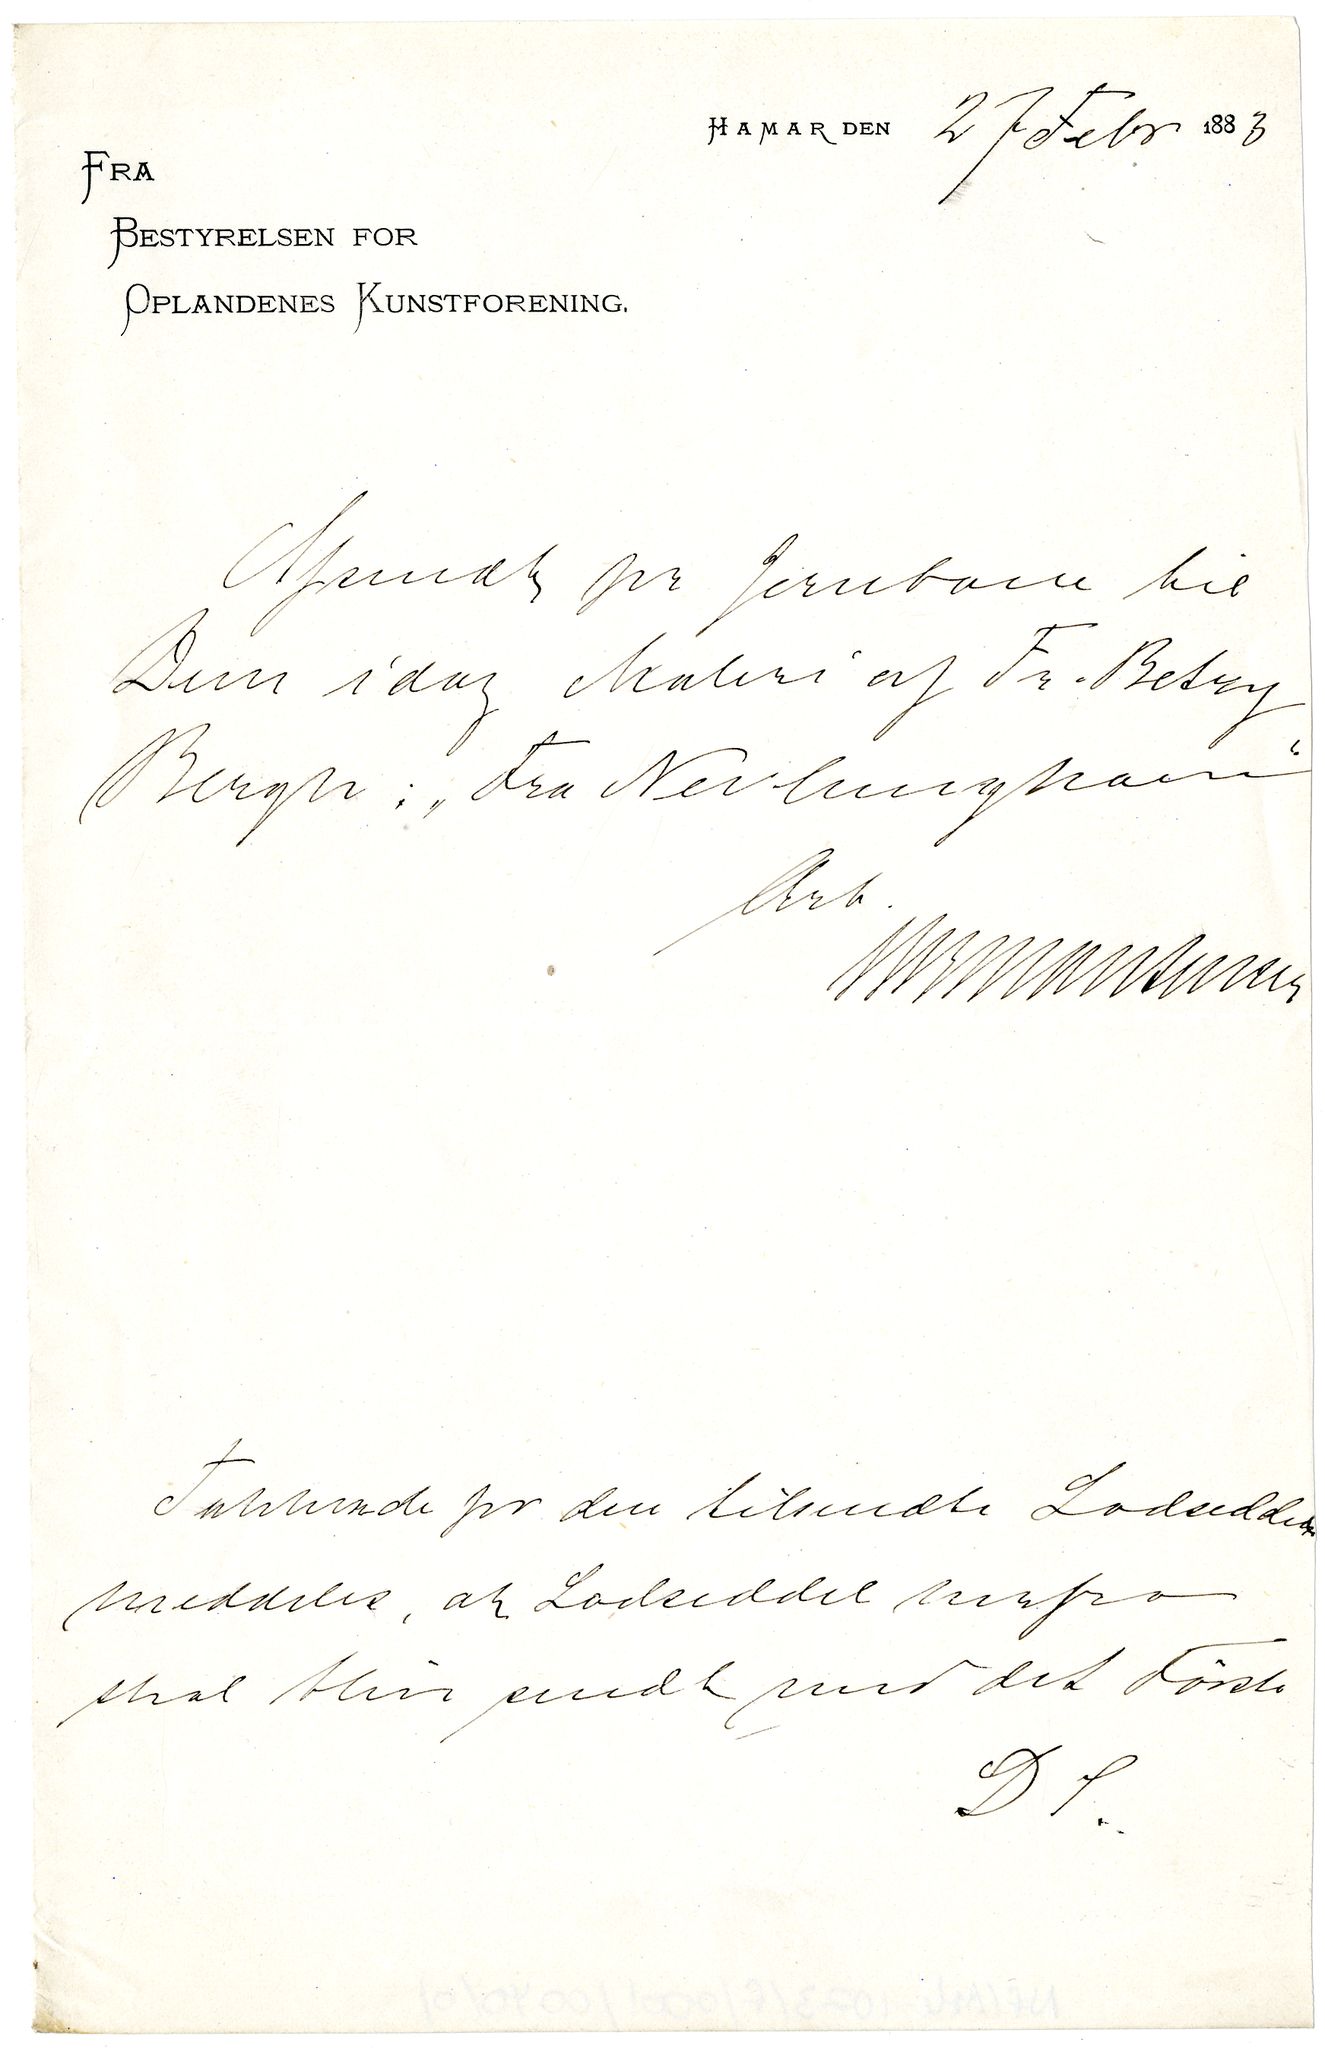 HAMAR DEN 27 Febr 1883
FRA
BESTYRELSEN FOR
OPLANDENES KUNSTFORENING.
Afsendt pr Jernbane til
Dem idag Maleri af Fr. Betzy
Bergh: „Fra Nevlunghavn“
Arb.
Takkende for den tilsendte Lodseddel
meddeles, at Lodseddel herfra
skal blive sendt med det Første
D S.